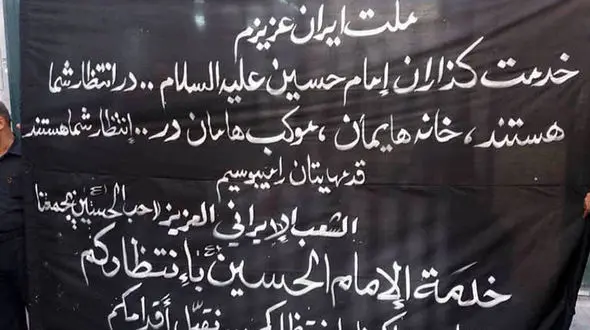 ملت ایران عزیزم
خدمت کذاران إمام حسین علیه السلام .. در انتظار شما
هستند ، خانه هایمان ، موکب هامان در .. إنتظار شما هستند
قدمهایتان را میبوسیم
الشعب الإیراني العزیز احب الحسین یجمعنا
خدمة الإمام الحسین بإنتظارکم
نقبّل أقدامکم